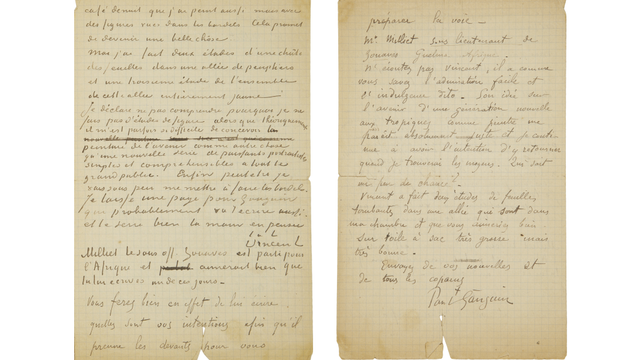 café dont que j'ai peint aussi
des figures vues dans les bordels. Cela promet
de devenir une belle chose
Moi j'ai fait deux études d'une chute
des feuilles dans une allée de peupliers
et une troisieme étude de l'ensemble
de cette allée entièrement jaune
Je déclare ne pas comprendre pourquoi je ne
fais pas d'études de figure alors que théoriquement
il m'est parfois si difficile de concevoir la
peinture de l'avenir comme autre chose
qu'une nouvelle série de puissants portraitistes
simples et comprehensibles à tout le
grand public. Enfin peutetre je
vais sous peu me mettre à faire les bordels.
Je laisse une page pour Gauguin
qui probablement va t'ecrire aussi
et te serre bien la main en pensée
t. à t.
Vincent
Milliet le sous off. Zouaves est parti pour
l'Afrique et aimerait bien que
tu lui ecrives un de ces jours.
Vous ferez bien en effet de lui écrire
quelles sont vos intentions afin qu'il
prenne les devants pour vous
préparer la voie —
Mr Milliet sous lieutenant de
Zouaves Guelma Afrique.
N'écoutez pas Vincent, il a comme
vous savez l'admiration facile et
l'indulgence dito. Son idée sur
l'avenir d'une génération nouvelle
aux tropiques comme peintre me
paraît absolument juste et je continue
à avoir l'intention d'y retourner
quand je trouverai les moyens. Qui sait
un peu de chance?
Vincent a fait deux études de feuilles
tombantes dans une allée qui sont dans
ma chambre et que vous aimeriez bien
sur toile à sac très grosse mais
très bonne.
Envoyez de vos nouvelles et
de tous les copains
Paul Gauguin